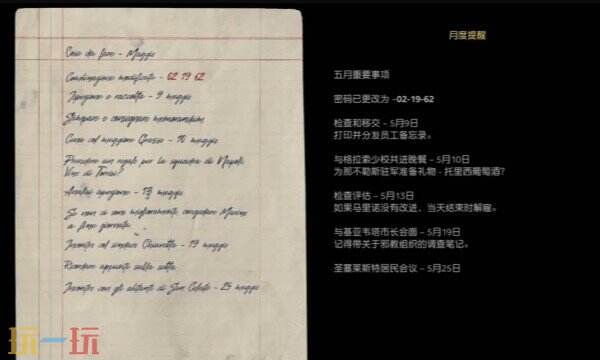 Cose da fare - Maggio
Combinazione modificata - 02 19 62
Ispezione e raccolta - 9 maggio
Stampare e consegnare memorandum
Cena col maggiore Grasso - 10 maggio
Prendere un regalo per la squadra di Napoli.
Vino di Torrisi?
Analisi ispezione - 13 maggio
Se non ci sono miglioramenti congedare Marino
a fine giornata.
Incontro col sindaco Chiavetta - 19 maggio
Ricordare appunti sulla setta
Incontro con gli abitanti di San Celeste - 25 maggio
月度提醒
五月重要事项
密码已更改为 –02-19-62
检查和移交 – 5月9日
打印并分发员工备忘录。
与格拉索少校共进晚餐 – 5月10日
为那不勒斯驻军准备礼物 - 托里西葡萄酒?
检查评估 – 5月13日
如果马里诺没有改进，当天结束时解雇。
与基亚韦塔市长会面 – 5月19日
记得带关于邪教组织的调查笔记。
圣塞莱斯特居民会议 – 5月25日
玩一玩